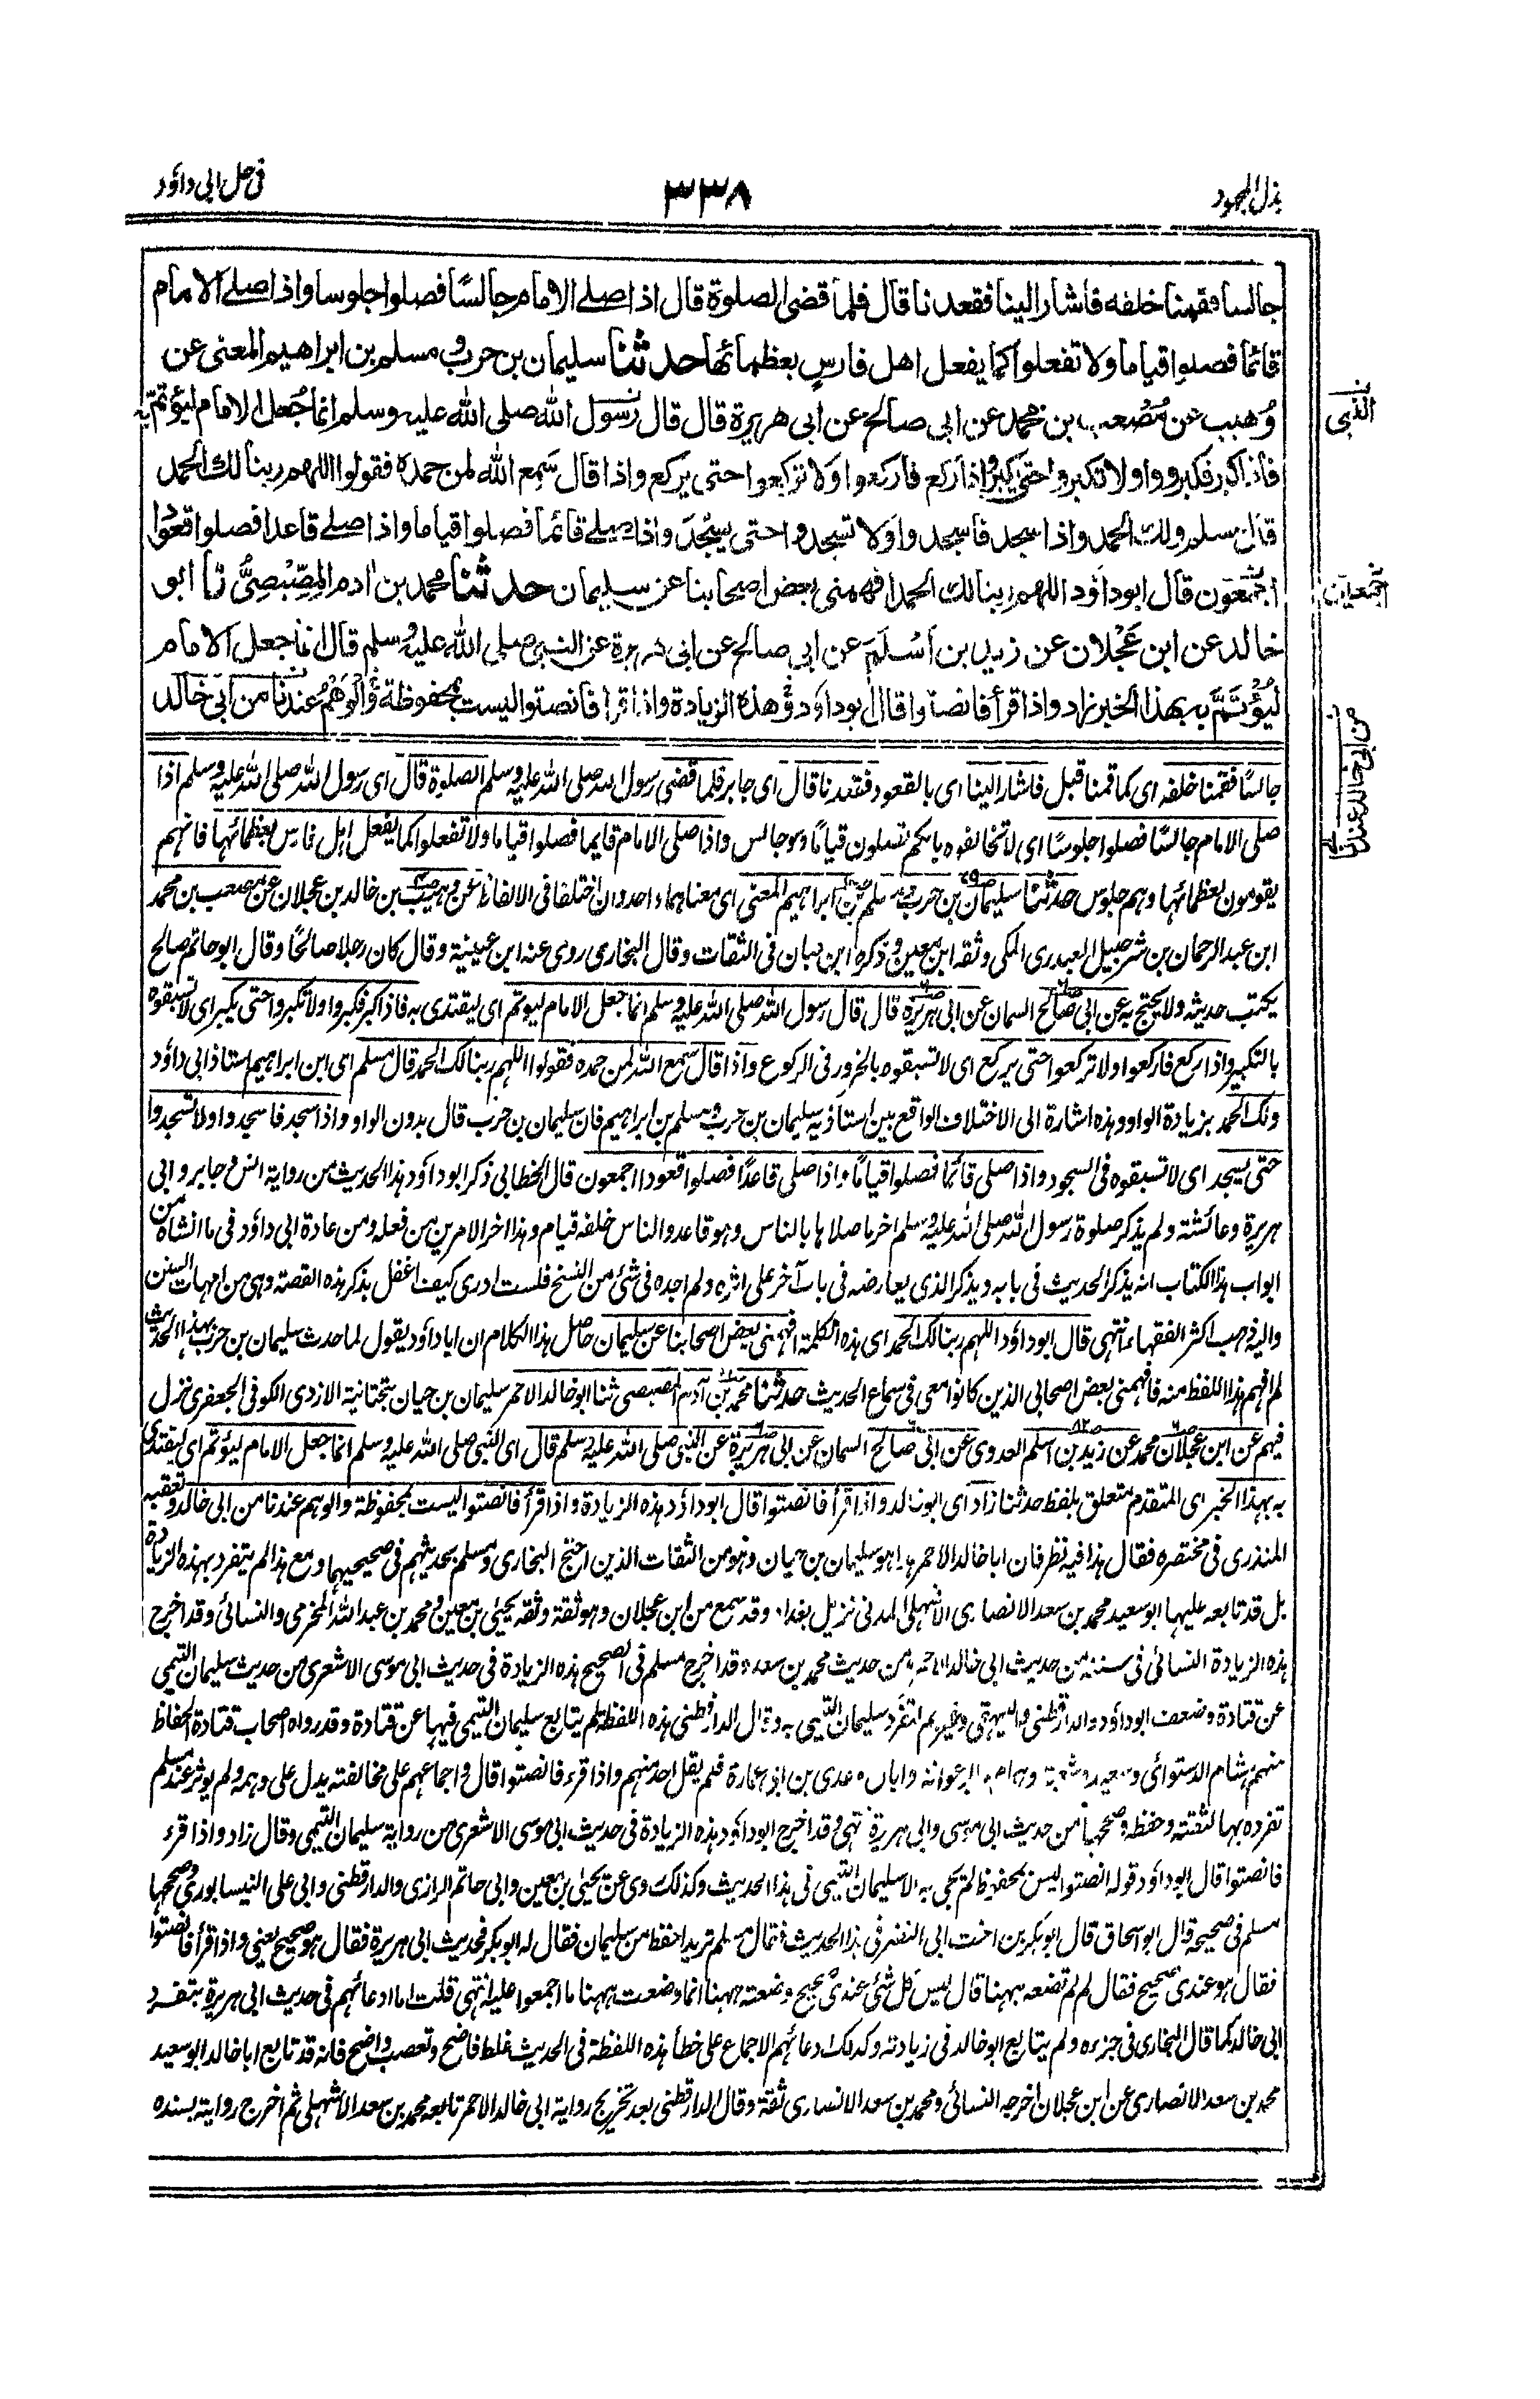 بذل المجهود
٣٣٨
فی حل ابی داؤد
جالسا فقمنا خلفه فاشار الینا فقعدنا قال فلما قضی الصلوة قال اذا صلے الامام جالسًا فصلوا جلوسا واذا صلے الامام
قائما فصلوا قیاما ولا تفعلوا کما یفعل اهل فارس بعظمائها حدثنا سلیمان بن حرب و مسلم بن ابراهیم المعنی عن
وُهیب عن مُصْعب بن محمد عن ابی صالح عن ابی هریرة قال قال رسول الله صلی الله علیه وسلم انما جُعل الامام لیؤتمّ به
فاذا کبر فکبروا ولا تکبروا حتی یکبر واذا رکع فارکعوا ولا ترکعوا حتی یرکع واذا قال سَمِع الله لمن حمده فقولوا اللهم ربنا لك الحمد
قال مسلم ولك الحمد واذا سجد فاسجدوا ولا تسجدوا حتی یسجدَ واذا صلے قائما فصلوا قیاما واذا صلے قاعدا فصلوا قعودا
اجمعون قال ابو داؤد اللهم ربنا لك الحمد افهمنی بعض اصحابنا عن سلیمان حدثنا محمد بن اٰدم المِصِّیْصِیُّ نا ابو
خالد عن ابن عَجْلان عن زید بن اَسْلَمَ عن ابی صالح عن ابی هریرة عن النبی صلی الله علیه وسلم قال انما جعل الامام
لیُؤْتَمَّ به بهذا الخبر زاد واذا قرأ فانصتوا قال ابو داؤد وهذه الزیادة واذا قرأ فانصتوا لیست بمحفوظة والوَهْمُ عندنا من ابی خالد
النبی
اجمعین
من ابی خالد عندنا
جالسًا فقمنا خلفه ای کما قمنا قبل فاشار الینا ای بالقعود فقعدنا قال ای جابر فلما قضی رسول الله صلی الله علیه وسلم الصلوة قال ای رسول الله صلی الله علیه وسلم اذا
صلی الامام جالسًا فصلوا جلوسًا ای لا تخالفوه بانکم تصلون قیامًا وهو جالس واذا صلی الامام قایما فصلوا قیاما ولا تفعلوا کما یفعل اہل فارس بعظمائہا فانہم
یقومون بعظمائہا وہم جلوس حدثنا سلیمان بن حرب ومسلم بن ابراہیم المعنی ای معناہما واحد وان اختلفا فی الالفاظ عن وہیب بن خالد بن عجلان عن مصعب بن محمد
ابن عبد الرحمان بن شرحبیل العبدری المکی وثقه ابن معین وذکره ابن حبان فی الثقات وقال البخاری روی عنه ابن عیینة وقال کان رجلا صالحًا وقال ابو حاتم صالح
یکتب حدیثه ولا یحتج به عن ابی صالح السمان عن ابی ہریرة قال قال رسول الله صلی الله علیه وسلم انما جعل الامام لیوتم ای لیقتدی به فاذا کبر فکبروا ولا تکبروا حتی یکبر ای لا تسبقوه
بالتکبیر واذا رکع فارکعوا ولا ترکعوا حتی یرکع ای لا تسبقوه بالخرور فی الرکوع واذا قال سمع الله لمن حمده فقولوا اللہم ربنا لک الحمد قال مسلم ای ابن ابراہیم استاذ ابی داؤد
ولک الحمد بزیادة الواو وہذه اشارة الی الاختلاف الواقع بین استاذیه سلیمان بن حرب ومسلم بن ابراہیم فان سلیمان بن حرب قال بدون الواو واذا سجد فاسجدوا ولا تسجدوا
حتی یسجد ای لا تسبقوه فی السجود واذا صلی قائما فصلوا قیامًا واذا صلی قاعدًا فصلوا قعودا اجمعون قال الخطابی ذکر ابو داؤد ہذا الحدیث من روایة انس وجابر وابی
ہریرة وعائشة ولم یذکر صلوة رسول الله صلی الله علیه وسلم اخر ما صلاہا بالناس وہو قاعد والناس خلفه قیام وہذا اخر الامرین من فعله ومن عادة ابی داؤد فی ما انشاه من
ابواب ہذا الکتاب انه یذکر الحدیث فی بابه ویذکر الذی یعارضه فی باب آخر علی اثره ولم اجده فی شئ من النسخ فلست ادری کیف اغفل بذکر ہذه القصة وہی من امہات السنن
والیه ذہب اکثر الفقہاء انتہی قال ابو داؤد اللہم ربنا لک الحمد ای ہذه الکلمة افہمنی بعض اصحابنا عن سلیمان حاصل ہذا الکلام ان ابا داؤد یقول لما حدث سلیمان بن حرب بہذا الحدیث
لم افہم ہذا اللفظ منه فافہمنی بعض اصحابی الذین کانوا معی فی سماع الحدیث حدثنا محمد بن آدم المصیصی ثنا ابو خالد الاحمر سلیمان بن حیان بتحتانیة الازدی الکوفی الجعفری نزل
فیہم عن ابن عجلان محمد عن زید بن اسلم العدوی عن ابی صالح السمان عن ابی ہریرة عن النبی صلی الله علیه وسلم قال ای النبی صلی الله علیه وسلم انما جعل الامام لیؤتم ای لیقتدی
به بہذا الخبر ای المتقدم متعلق بلفظ حدثنا زاد ای ابو خالد واذا قرأ فانصتوا قال ابو داؤد ہذه الزیادة واذا قرأ فانصتوا لیست بمحفوظة والوہم عندنا من ابی خالد وتعقبه
المنذری فی مختصره فقال ہذا فیه نظر فان ابا خالد الاحمر ہذا ہو سلیمان بن حیان وہو من الثقات الذین احتج البخاری ومسلم بحدیثہم فی صحیحیہما ومع ہذا لم یتفرد بہذه الزیادة
بل قد تابعه علیہا ابو سعید محمد بن سعد الانصاری الاشہلی المدنی نزیل بغداد وقد سمع من ابن عجلان وہو ثقة وثقه یحیٰی بن معین ومحمد بن عبد الله المخرمی والنسائی وقد اخرج
ہذه الزیادة النسائی فی سننه من حدیث ابی خالد الاحمر ومن حدیث محمد بن سعد وقد اخرج مسلم فی الصحیح ہذه الزیادة فی حدیث ابی موسی الاشعری من حدیث سلیمان التیمی
عن قتادة وضعف ابو داؤد والدارقطنی والبیہقی وغیرہم تفرد سلیمان التیمی به وقال الدارقطنی ہذه اللفظة لم یتابع سلیمان التیمی فیہا عن قتادة وقد رواه اصحاب قتادة الحفاظ
منہم ہشام الدستوائی وسعید وشعبة وہمام وابو عوانة وابان وعدی بن ابی عمارة فلم یقل احد منہم واذا قرء فانصتوا قال واجماعہم علی مخالفته یدل علی وہمه ولم یوثر عند مسلم
تفرده بہا لثقته وحفظه وصححہا من حدیث ابی موسی وابی ہریرة انتہی وقد اخرج ابو داؤد ہذه الزیادة فی حدیث ابی موسی الاشعری من روایة سلیمان التیمی وقال زاد واذا قرء
فانصتوا قال ابو داؤد قوله انصتوا لیس بمحفوظ لم یجئ به الا سلیمان التیمی فی ہذا الحدیث وکذلک روی عن یحیٰی بن معین وابی حاتم الرازی والدارقطنی وابی علی النیسابوری وصححہا
مسلم فی صحیحه قال ابو اسحاق قال ابو بکر بن اخت ابی النضر فی ہذا الحدیث فقال مسلم ترید احفظ من سلیمان فقال له ابو بکر فحدیث ابی ہریرة فقال ہو صحیح یعنی واذا قرأ فانصتوا
فقال ہو عندی صحیح فقال لم لم تضعه ہہنا قال لیس کل شئ عندی صحیح وضعته ہہنا انما وضعت ہہنا ما اجمعوا علیه انتہی قلت اما ادعائہم فی حدیث ابی ہریرة بتفرد
ابی خالد کما قال البخاری فی جزءه ولم یتابع ابو خالد فی زیادته وکذلک دعائہم الاجماع علی خطأ ہذه اللفظة فی الحدیث غلط فاضح وتعصب واضح فانه قد تابع ابا خالد ابو سعید
محمد بن سعد الانصاری عن ابن عجلان اخرجه النسائی ومحمد بن سعد الانصاری ثقة وقال الدارقطنی بعد تخریج روایة ابی خالد الاحمر تابعه محمد بن سعد الاشہلی ثم اخرج روایة بسنده